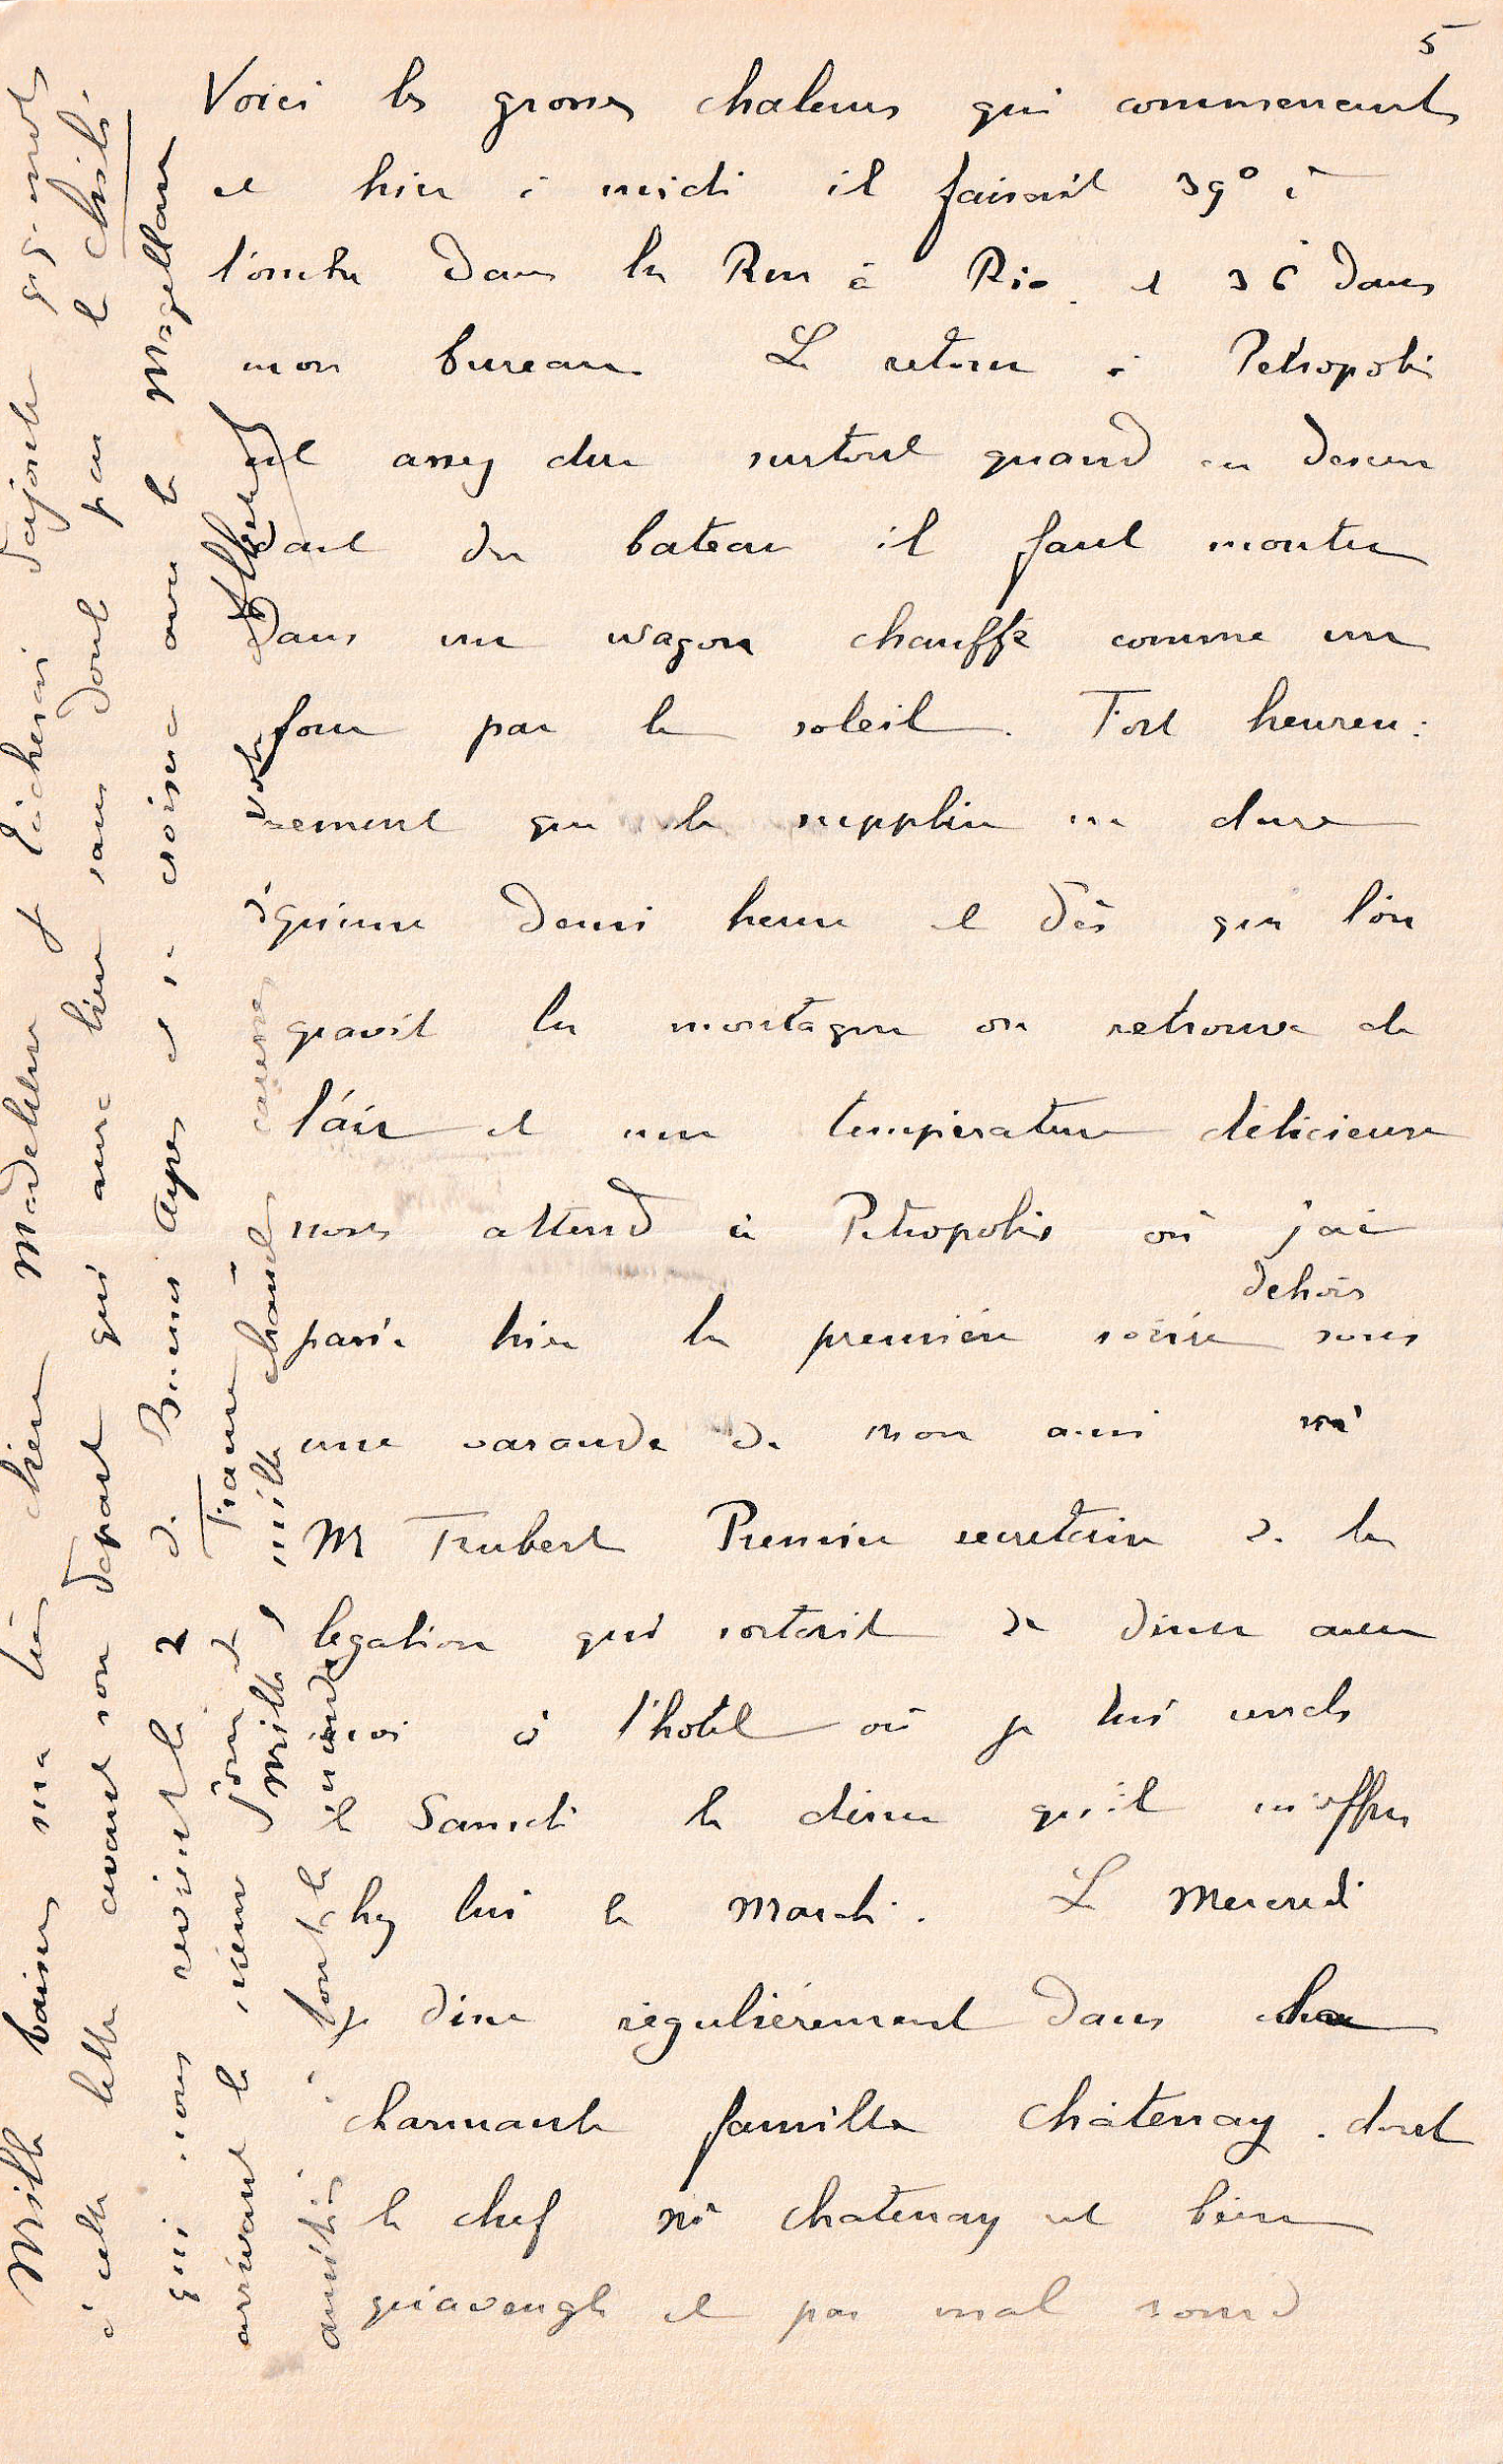 5
Voici les grosses chaleurs qui commencent
et hier à midi il faisait 39° à
l'ombre dans la Rue à Rio. et 36 dans
mon bureau. Le retour à Petropolis
est assez dur surtout quand en descen
dant du bateau il faut monter
dans un wagon chauffé comme un
four par le soleil. Fort heureu:
sement que le supplice ne dure
qu'une demi heure et dès que l'on
gravit la montagne on retrouve de
l'air et une température délicieuse
nous attend à Petropolis où j'ai
dehors
passé hier la première soirée sous
une varande de mon ami
Mr Trubert Premier secretaire de la
legation qui sortait de diner avec
moi à l'hotel où je lui rends
le Samedi le diner qu'il m'offre
chez lui le Mardi. Le Mercredi
je dine régulièrement dans
charmante famille Châtenay. dont
le chef Mr Chatenay est bien
qu'aveugle et pas mal sourd
Mille baisers ma très chère Madeleine je tâcherai d'ajouter qq. mots
à cette lettre avant son départ qui aura lieu sans doute par le Chili.
qui nous revient le 2 de Buenos Ayres et se croise avec le Magellan
arrivant le même jour de France
Mille, mille chaudes caresses de votre Albert
amitiés à tout le monde